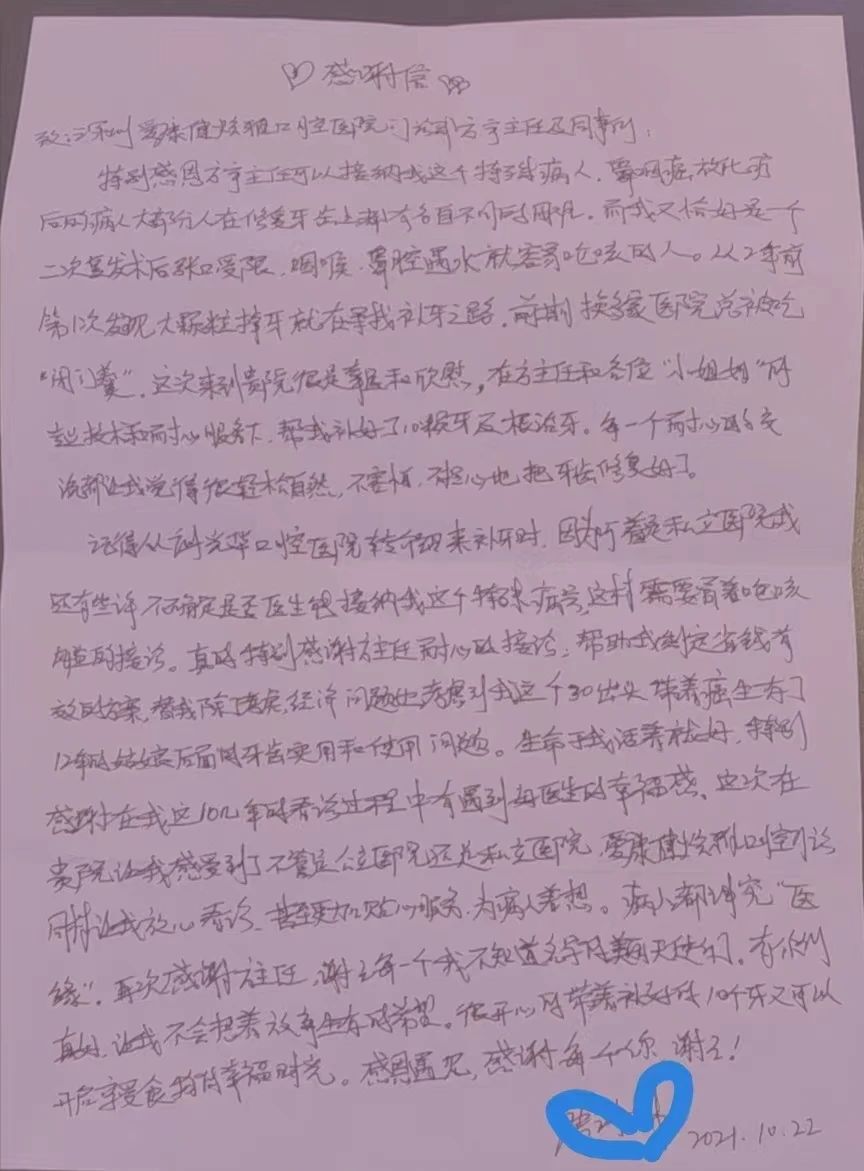 感谢信
致：深圳爱康健悦雅口腔医院门诊部方宇主任及同事们：
特别感恩方宇主任可以接纳我这个特殊病人，鼻咽癌放化疗
后的病人大部分人在修复牙齿上都有各自不同的困难。而我又恰好是一个
二次复发术后张口受限，咽喉、鼻腔遇水就容易呛咳的人。从2年前
第1次发现大颗粒掉牙就在寻找补牙之路，前期换多家医院总被吃
“闭门羹”。这次来到贵院很是幸运和欣慰，在方主任和各位“小姐姐”的
专业技术和耐心服务下，帮我补好了10颗牙及根治牙。每一个耐心的交
流都让我觉得很轻松自然，不害怕，不担心地把牙齿修复好了。
记得从 口腔医院转介绍来补牙时，因为 着是私立医院我
还有些许不确定是否医生能接纳我这个特殊病号，这种需要冒着呛咳
的接诊。真的特别感谢方主任耐心的接诊，帮助我制定省钱有
效的方案，替我除 虑，经济问题也考虑到我这个30出头带着癌生存了
12年的姑娘后面的牙齿实用和使用问题。生命于我活着就好，特别
感谢在我这10几年的看诊过程中有遇到好医生的幸福感。这次在
贵院让我感受到了不管是公立医院还是私立医院，爱康健悦雅口腔门诊
同样让我放心看诊，甚至更加贴心服务，为病人着想。病人都讲究“医
缘”。再次感谢方主任，谢谢每一个我不知道名字的美丽天使们。有你们
真好，让我不会想着放弃生存的希望。很开心的带着补好的10个牙又可以
开启享受食物的幸福时光。感恩遇见，感谢每个你，谢谢！
2021.10.22